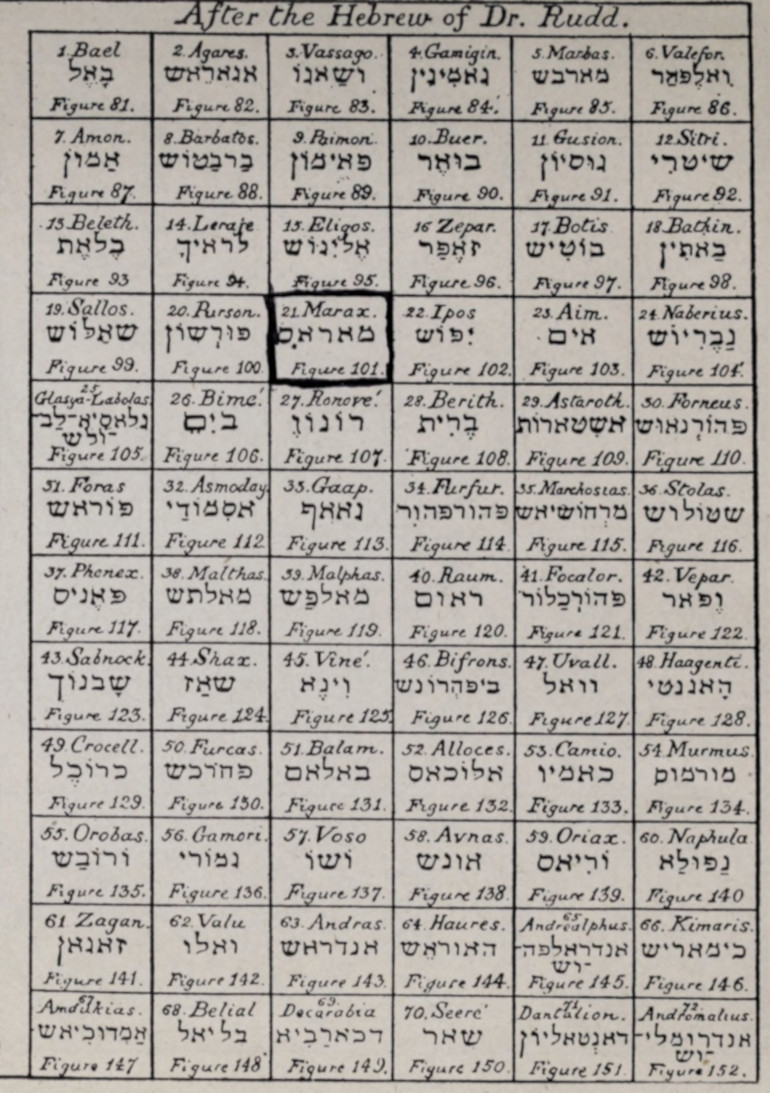 After the Hebrew of Dr. Rudd.
1. Bael
בָאֵל
Figure 81.
2. Agares.
אגאראש
Figure 82.
3. Vassago.
ושאגו
Figure 83.
4. Gamigin.
גאמיגין
Figure 84.
5. Marbas.
מארבש
Figure 85.
6. Valefor.
ואלפאר
Figure 86.
7. Amon.
אמון
Figure 87.
8. Barbatos.
ברבטוש
Figure 88.
9. Paimon.
פאימון
Figure 89.
10. Buer.
בואר
Figure 90.
11. Gusion.
גוסיון
Figure 91.
12. Sitri.
שיטרי
Figure 92.
13. Beleth.
בלאת
Figure 93
14. Leraje
לראיך
Figure 94.
15. Eligos.
אליגוש
Figure 95.
16 Zepar.
זאפר
Figure 96.
17. Botis
בוטיש
Figure 97.
18. Bathin.
באתין
Figure 98.
19. Sallos.
שאלוש
Figure 99.
20. Purson.
פורשון
Figure 100.
21. Marax.
מאראס
Figure 101.
22. Ipos
יפוש
Figure 102.
23. Aim.
אים
Figure 103.
24. Naberius.
נבריוש
Figure 104.
25
Glasya-Labolas.
גלאסיא-לב־
־ולש
Figure 105.
26. Bimé.
בים
Figure 106.
27. Ronové.
רונוו
Figure 107.
28. Berith.
ברית
Figure 108.
29. Astaroth.
אשטארות
Figure 109.
30. Forneus.
פהורנאוש
Figure 110.
31. Foras
פוראש
Figure 111.
32. Asmoday
אסמודי
Figure 112
33. Gaap.
גאאף
Figure 113.
34. Furfur.
פהורפהור
Figure 114.
35. Marchosias.
מרחושיאש
Figure 115.
36. Stolas.
שטולוש
Figure 116.
37. Phenex.
פאניס
Figure 117.
38. Malthas.
מאלתש
Figure 118.
39. Malphas.
מאלפש
Figure 119.
40. Raum.
ראום
Figure 120.
41. Focalor.
פהורכלור
Figure 121.
42. Vepar.
ופאר
Figure 122.
43. Sabnock.
שבנוך
Figure 123.
44. Shax.
שאז
Figure 124.
45. Viné.
וינא
Figure 125.
46. Bifrons.
ביפהרונש
Figure 126.
47. Uvall.
וואל
Figure 127.
48. Haagenti.
האגנטי
Figure 128.
49. Crocell.
כרוכל
Figure 129.
50. Furcas.
פהרכש
Figure 130.
51. Balam.
באלאם
Figure 131.
52. Alloces.
אלוכאס
Figure 132.
53. Camio.
כאמיו
Figure 133.
54. Murmus.
מורמוס
Figure 134.
55. Orobas.
ורובש
Figure 135.
56. Gamori.
גמורי
Figure 136.
57. Voso
ושו
Figure 137.
58. Avnas.
אונש
Figure 138.
59. Oriax.
וריאס
Figure 139.
60. Naphula
נפולא
Figure 140
61 Zagan.
זאגאן
Figure 141.
62. Valu
ואלו
Figure 142.
63. Andras.
אנדראש
Figure 143.
64. Haures.
האוראש
Figure 144.
65
Andrealphus.
אנדראלפה־
־וש
Figure 145.
66. Kimaris.
כימאריש
Figure 146.
67
Amdukias.
אמדוכיאש
Figure 147
68. Belial
בליאל
Figure 148
69.
Decarabia
דכארביא
Figure 149.
70. Seeré
שאר
Figure 150.
71
Dantalion.
דאנטאליון
Figure 151.
72.
Andromalius.
אנדרומלי־
־וש
Figure 152.